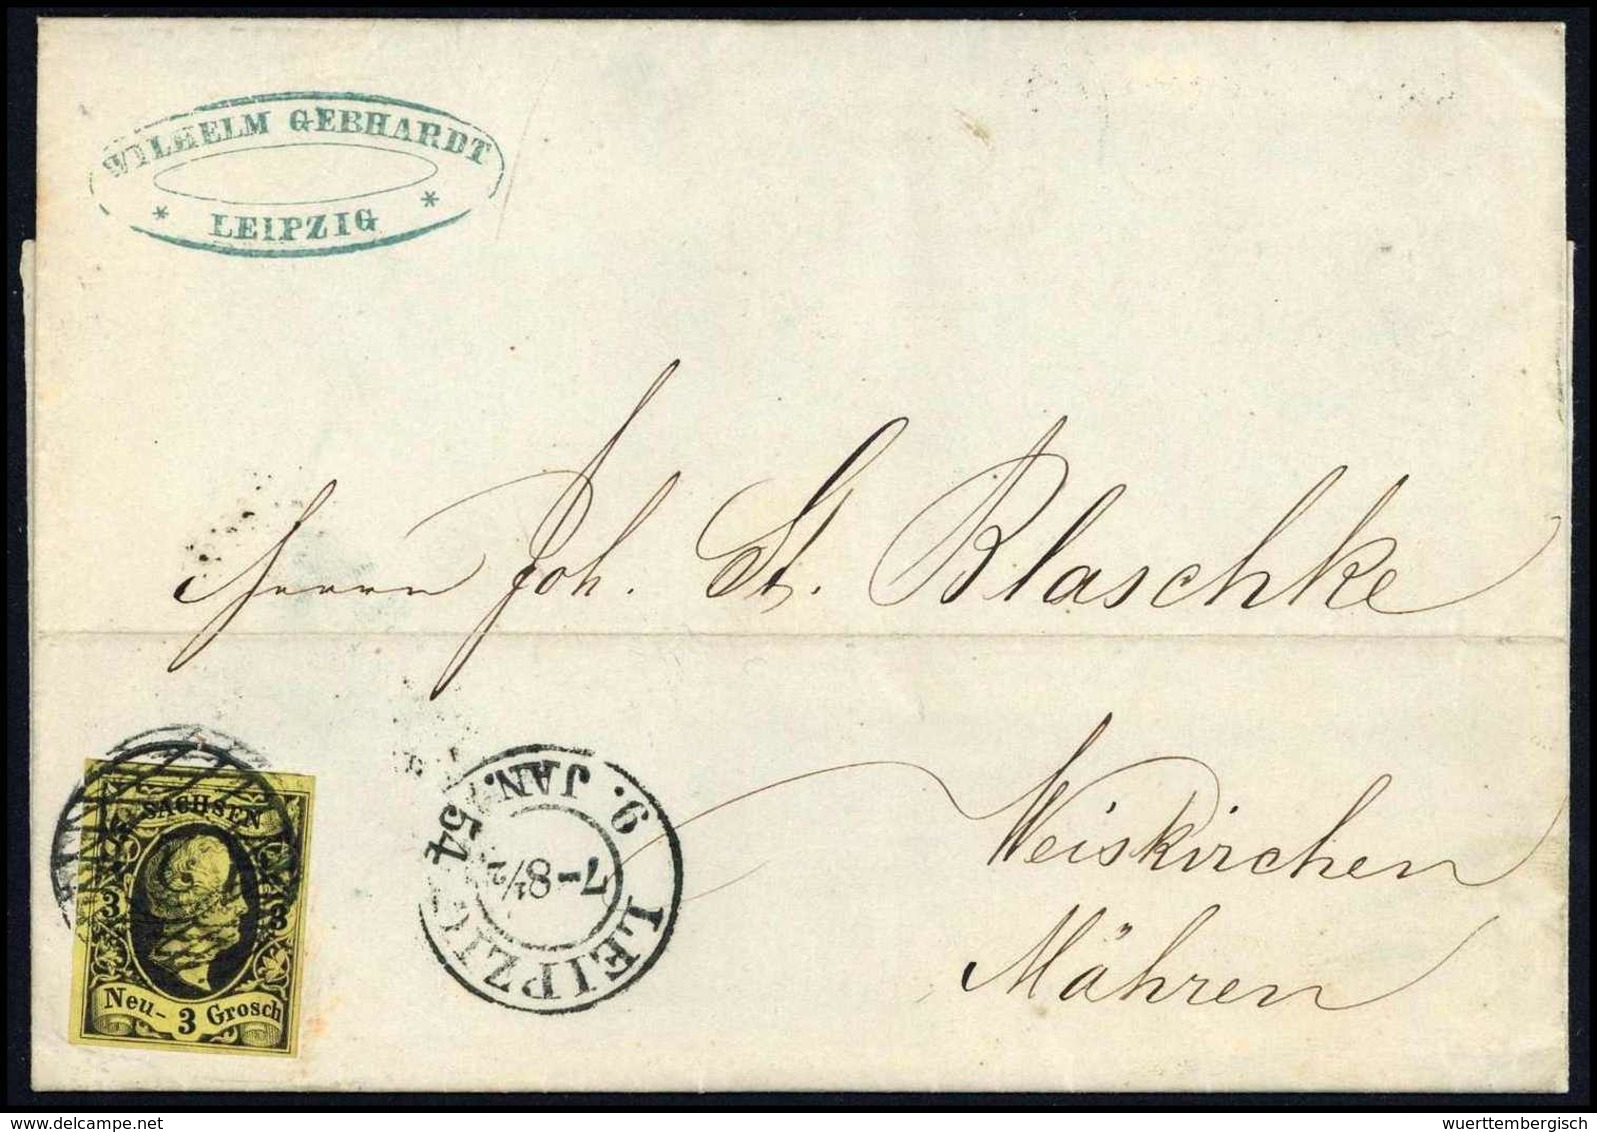 WILHELM GEBHARDT
* LEIPZIG *
Herrn Joh. St. Blaschke
Weiskirchen
Mähren
SACHSEN
3 3
Neu- 3 Grosch
LEIPZIG
9. JAN. 54
7-8½
delcampe.net
wuerttembergisch